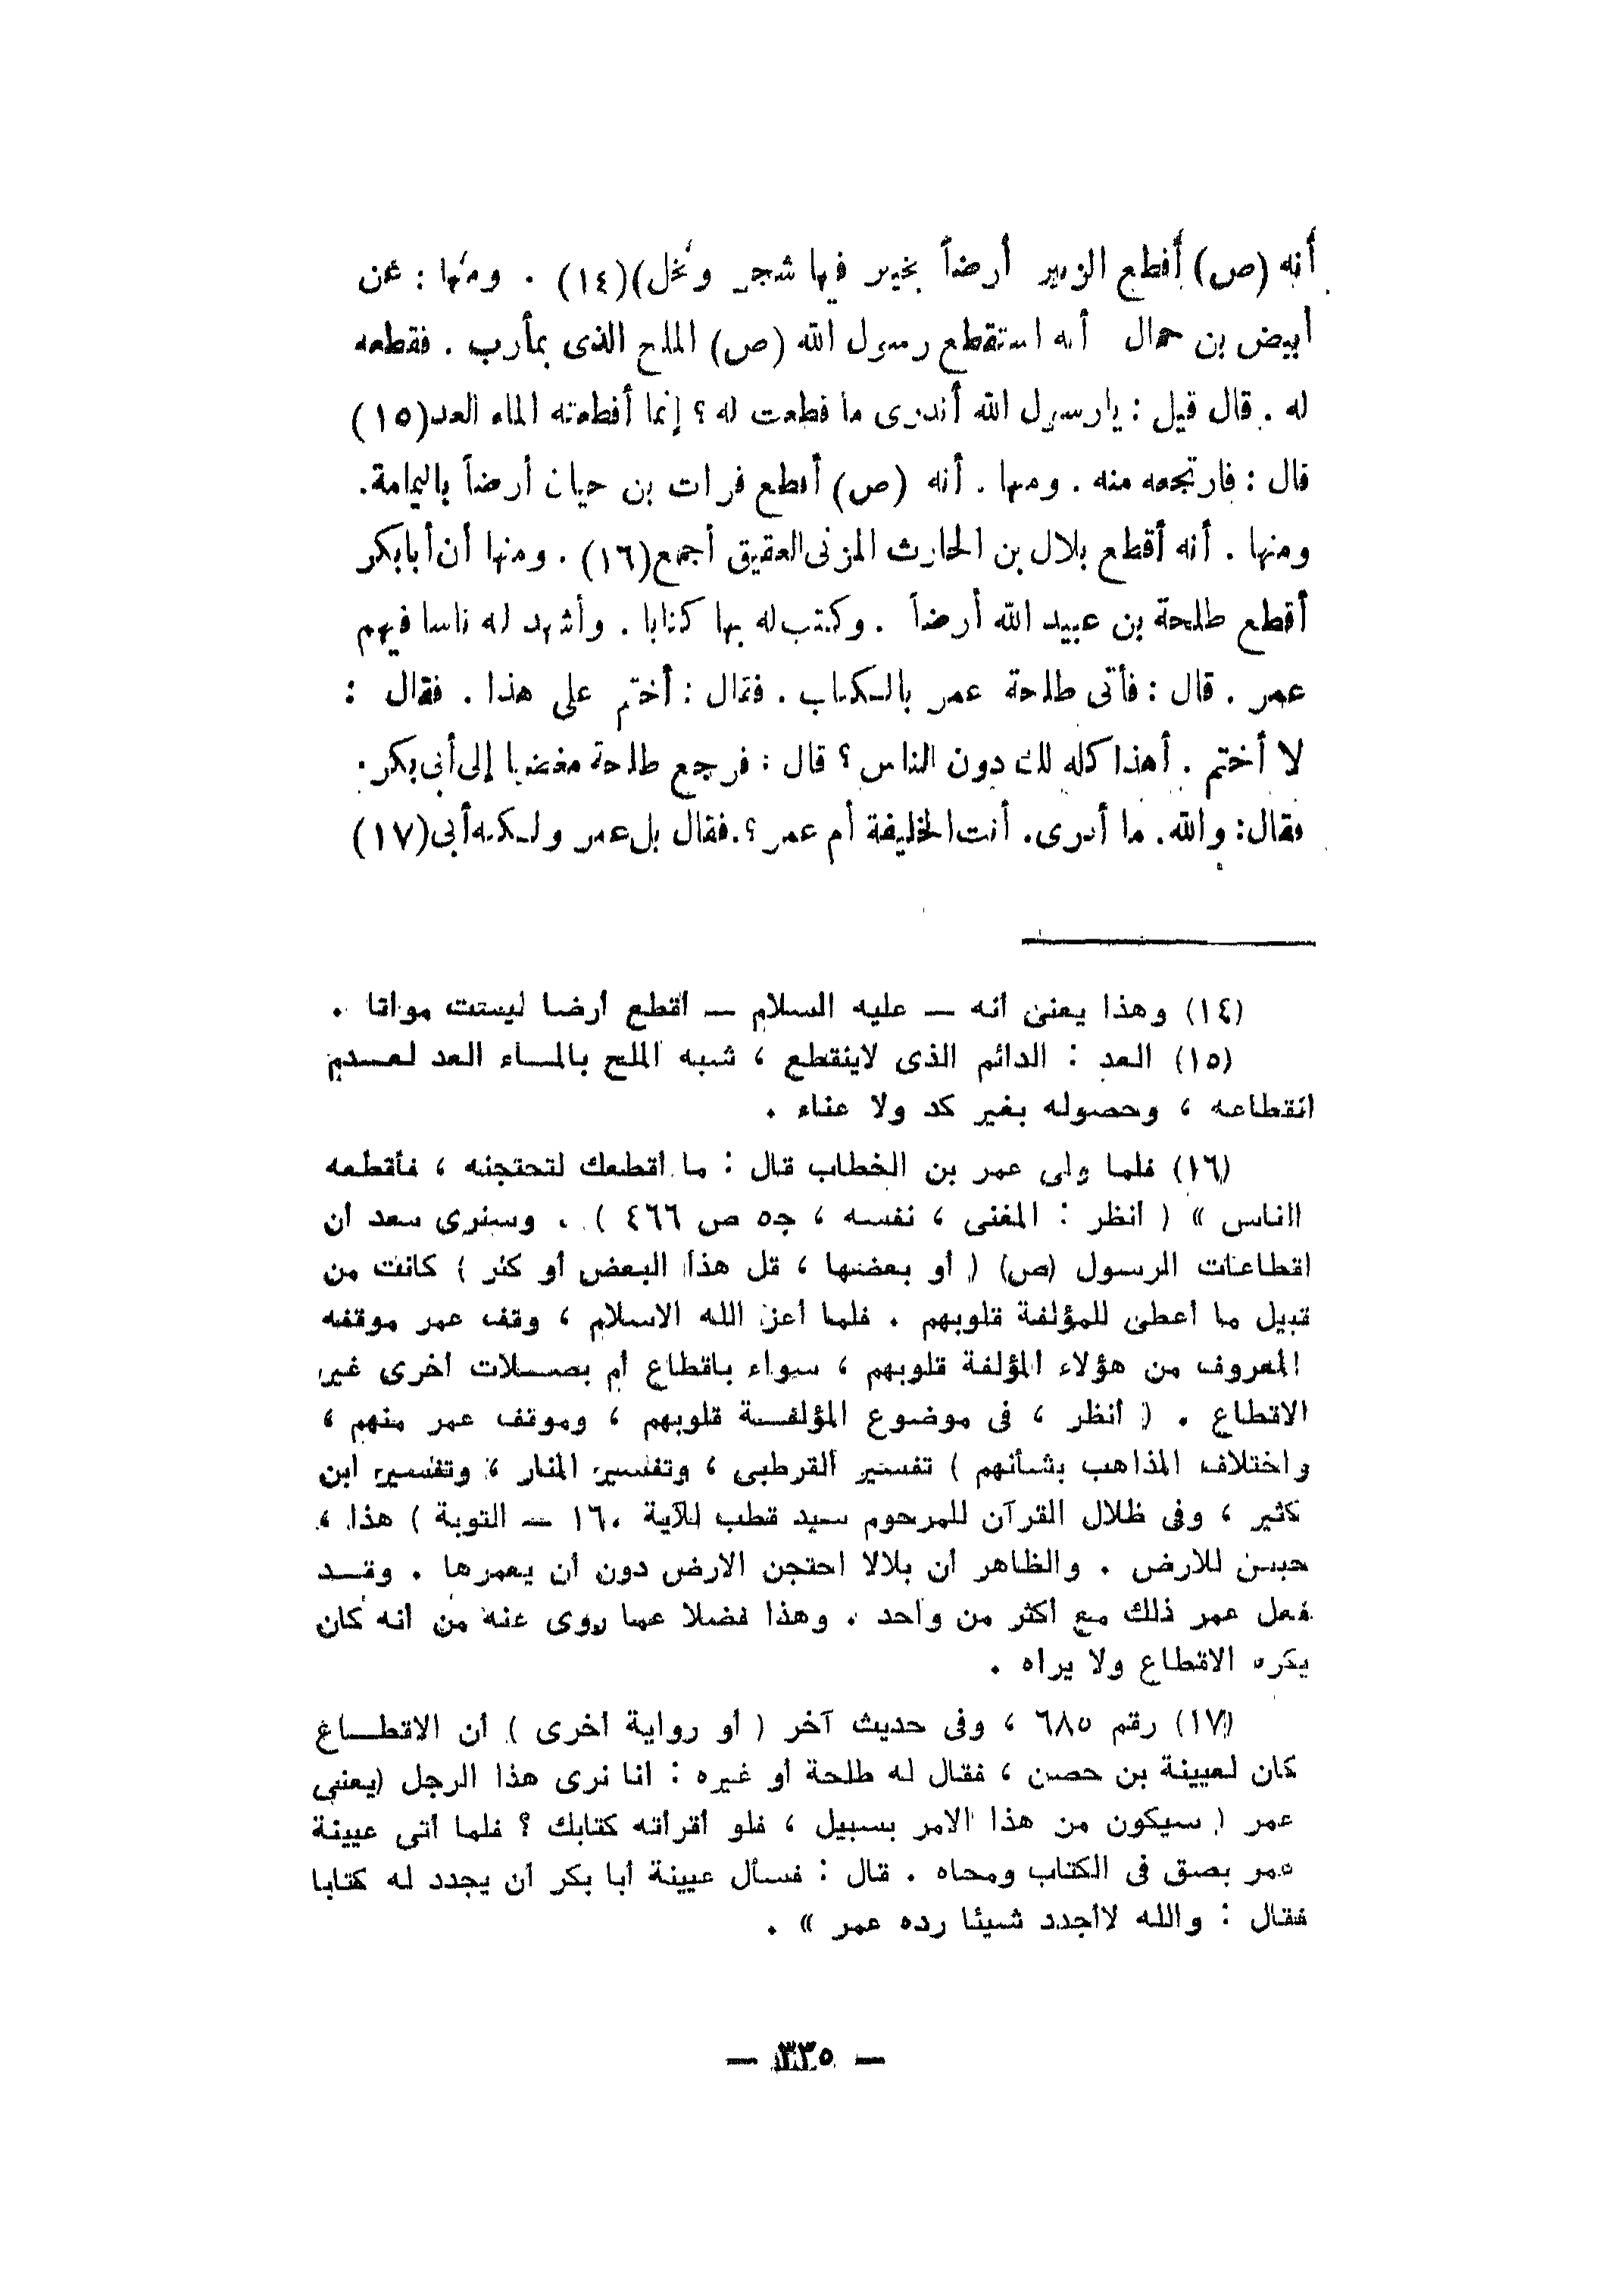 أنه (ص) أقطع الزبير أرضاً بخيبر فيها شجر ونخل)(١٤) . ومنها : عن
أبيض بن حمال أنه استقطع رسول الله (ص) الملح الذى بمأرب . فقطعه
له . قال قيل : يارسول الله أتدرى ما قطعت له ؟ إنما أقطعته الماء العد(١٥)
قال : فارتجعه منه . ومنها . أنه (ص) أقطع فرات بن حيان أرضاً باليمامة.
ومنها . أنه أقطع بلال بن الحارث المزنى العقيق أجمع(١٦) . ومنها أن أبا بكر
أقطع طلحة بن عبيد الله أرضاً . وكتب له بها كتابا . وأشهد له ناسا فيهم
عمر . قال : فأتى طلحة عمر بالكتاب . فقال : أختم على هذا . فقال :
لا أختم . أهذا كله لك دون الناس ؟ قال : فرجع طلحة مغضبا إلى أبى بكر .
فقال: والله. ما أدرى. أنت الخليفة أم عمر ؟. فقال بل عمر ولكنه أبى(١٧)
(١٤) وهذا يعنى أنه — عليه السلام — أقطع أرضا ليست مواتا .
(١٥) العد : الدائم الذى لاينقطع ، شبه الملح بالمـــاء العد لعــدم
انقطاعه ، وحصوله بغير كد ولا عناء .
(١٦) فلما ولى عمر بن الخطاب قال : ما أقطعك لتحتجنه ، فأقطعه
الناس » ( أنظر : المغنى ، نفسه ، جـ٥ ص ٤٦٦ ) . وسنرى سعد أن
اقطاعات الرسول (ص) ( أو بعضها ، قل هذا البعض أو كثر ) كانت من
قبيل ما أعطى للمؤلفة قلوبهم . فلما أعز الله الاسلام ، وقف عمر موقفه
المعروف من هؤلاء المؤلفة قلوبهم ، سواء باقطاع أم بصــلات أخرى غير
الاقطاع . ( أنظر ، فى موضوع المؤلفــة قلوبهم ، وموقف عمر منهم ،
واختلاف المذاهب بشأنهم ) تفسير القرطبى ، وتفسير المنار ، وتفسير ابن
كثير ، وفى ظلال القرآن للمرحوم سيد قطب للآية ١٦٠ — التوبة ) هذا ،
حبس للارض . والظاهر أن بلالا احتجن الارض دون أن يعمرها . وقــد
فعل عمر ذلك مع أكثر من واحد . وهذا فضلا عما روى عنه من أنه كان
يكره الاقطاع ولا يراه .
(١٧) رقم ٦٨٥ ، وفى حديث آخر ( أو رواية أخرى ) أن الاقطــاع
كان لعيينة بن حصن ، فقال له طلحة أو غيره : انا نرى هذا الرجل (يعنى
عمر ) سيكون من هذا الامر بسبيل ، فلو أقرأته كتابك ؟ فلما أتى عيينة
عمر بصق فى الكتاب ومحاه . قال : فسأل عيينة أبا بكر أن يجدد له كتابا
فقال : والله لاأجدد شيئا رده عمر » .
— ٣٣٥ —